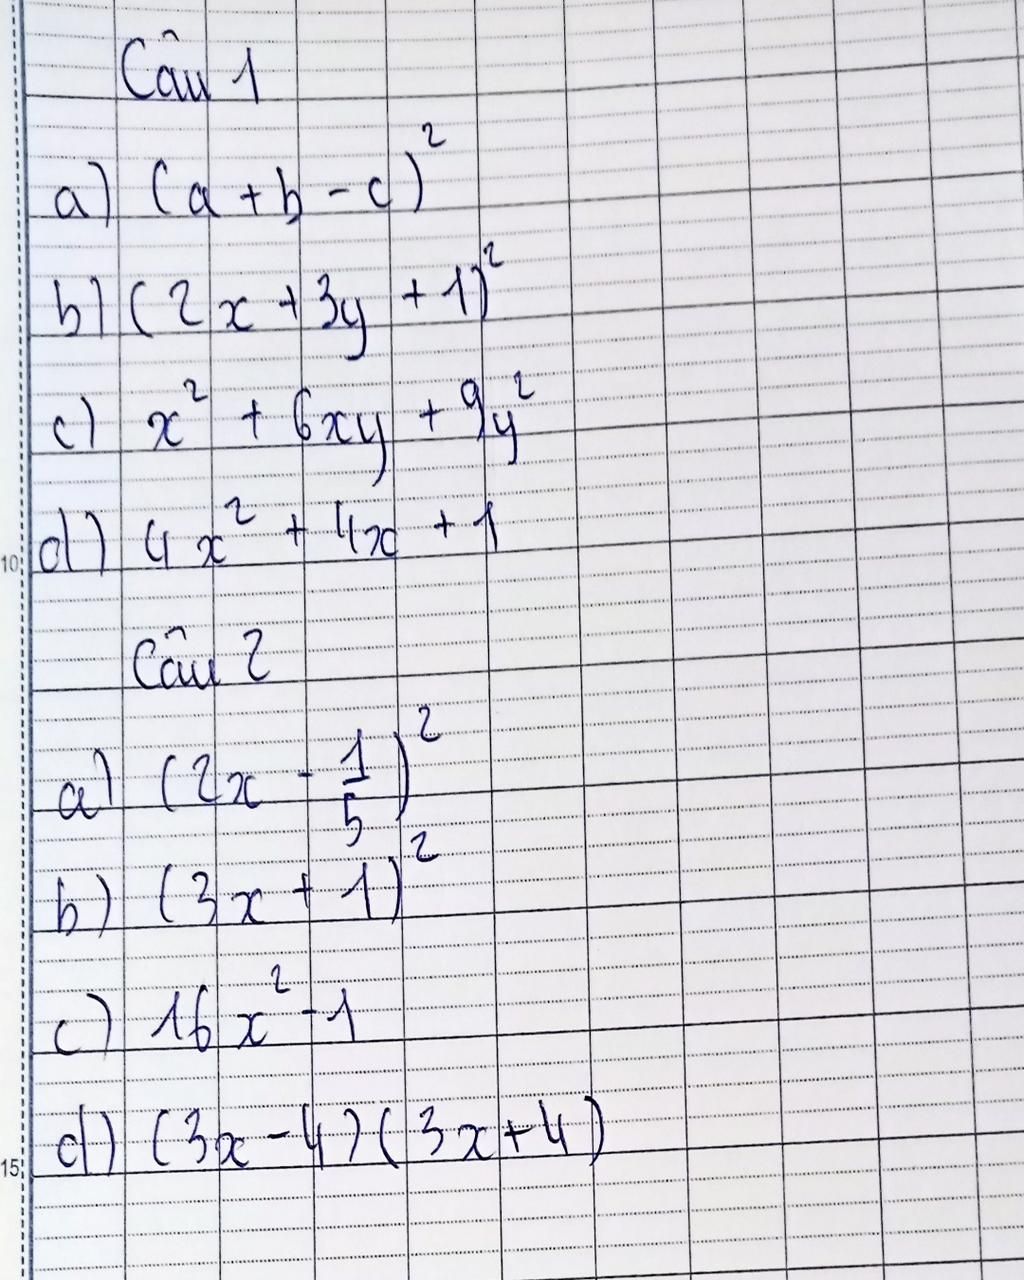 Câu 1
a) (a + b - c)²
b) (2x + 3y + 1)²
c) x² + 6xy + 9y²
d) 4x² + 4x + 1
10
Câu 2
a) (2x - 1/5)²
b) (3x + 1)²
c) 16x² - 1
d) (3x - 4)(3x + 4)
15